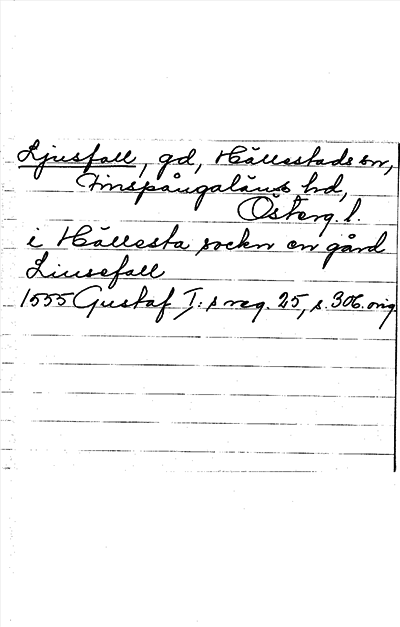 Ljusfall, gd, Hällestads sn,
Finspångaläns hd,
Österg. l.
i Hällesta sockn en gård
Liusefall
1555 Gustaf I:s reg. 25, s. 306. orig